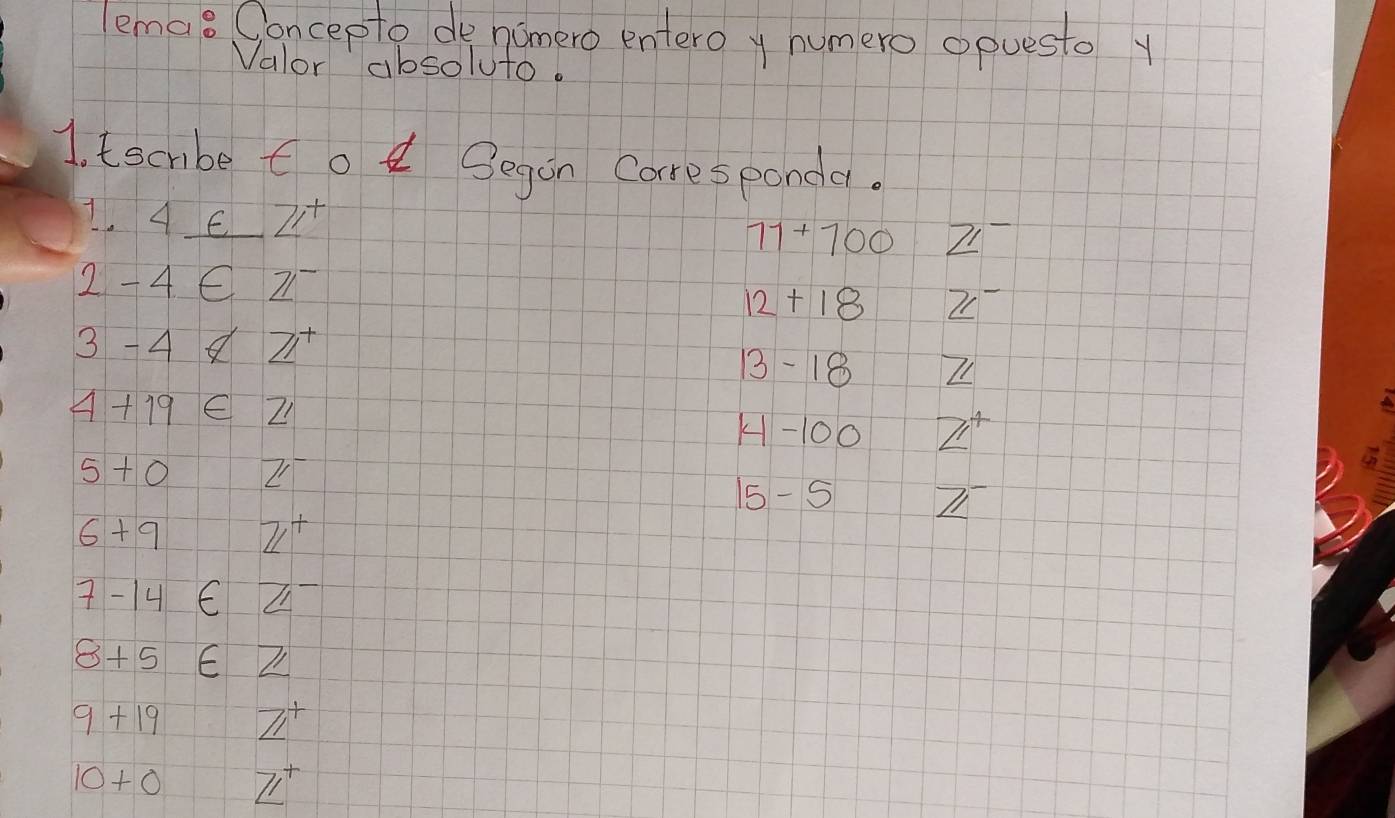 Tema: Concepto de número entero y numero opuesto y
Valor absoluto.
1. Escribe ∈ o ∉ Según Corresponda.
1. 4 ∈ ℤ⁺
2 -4 ∈ ℤ⁻
3 -4 ∉ ℤ⁺
4 +19 ∈ ℤ
5 +0 ℤ⁻
6 +9 ℤ⁺
7 -14 ∈ ℤ⁻
8 +5 ∈ ℤ
9 +19 ℤ⁺
10 +0 ℤ⁺
11 +100 ℤ⁻
12 +18 ℤ⁻
13 -18 ℤ
14 -100 ℤ⁺
15 -5 ℤ⁻
15